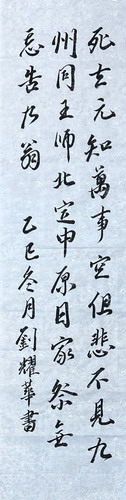 死去元知萬事空但悲不見九
州同王師北定中原日家祭無
忘告乃翁 乙巳冬月劉耀華書